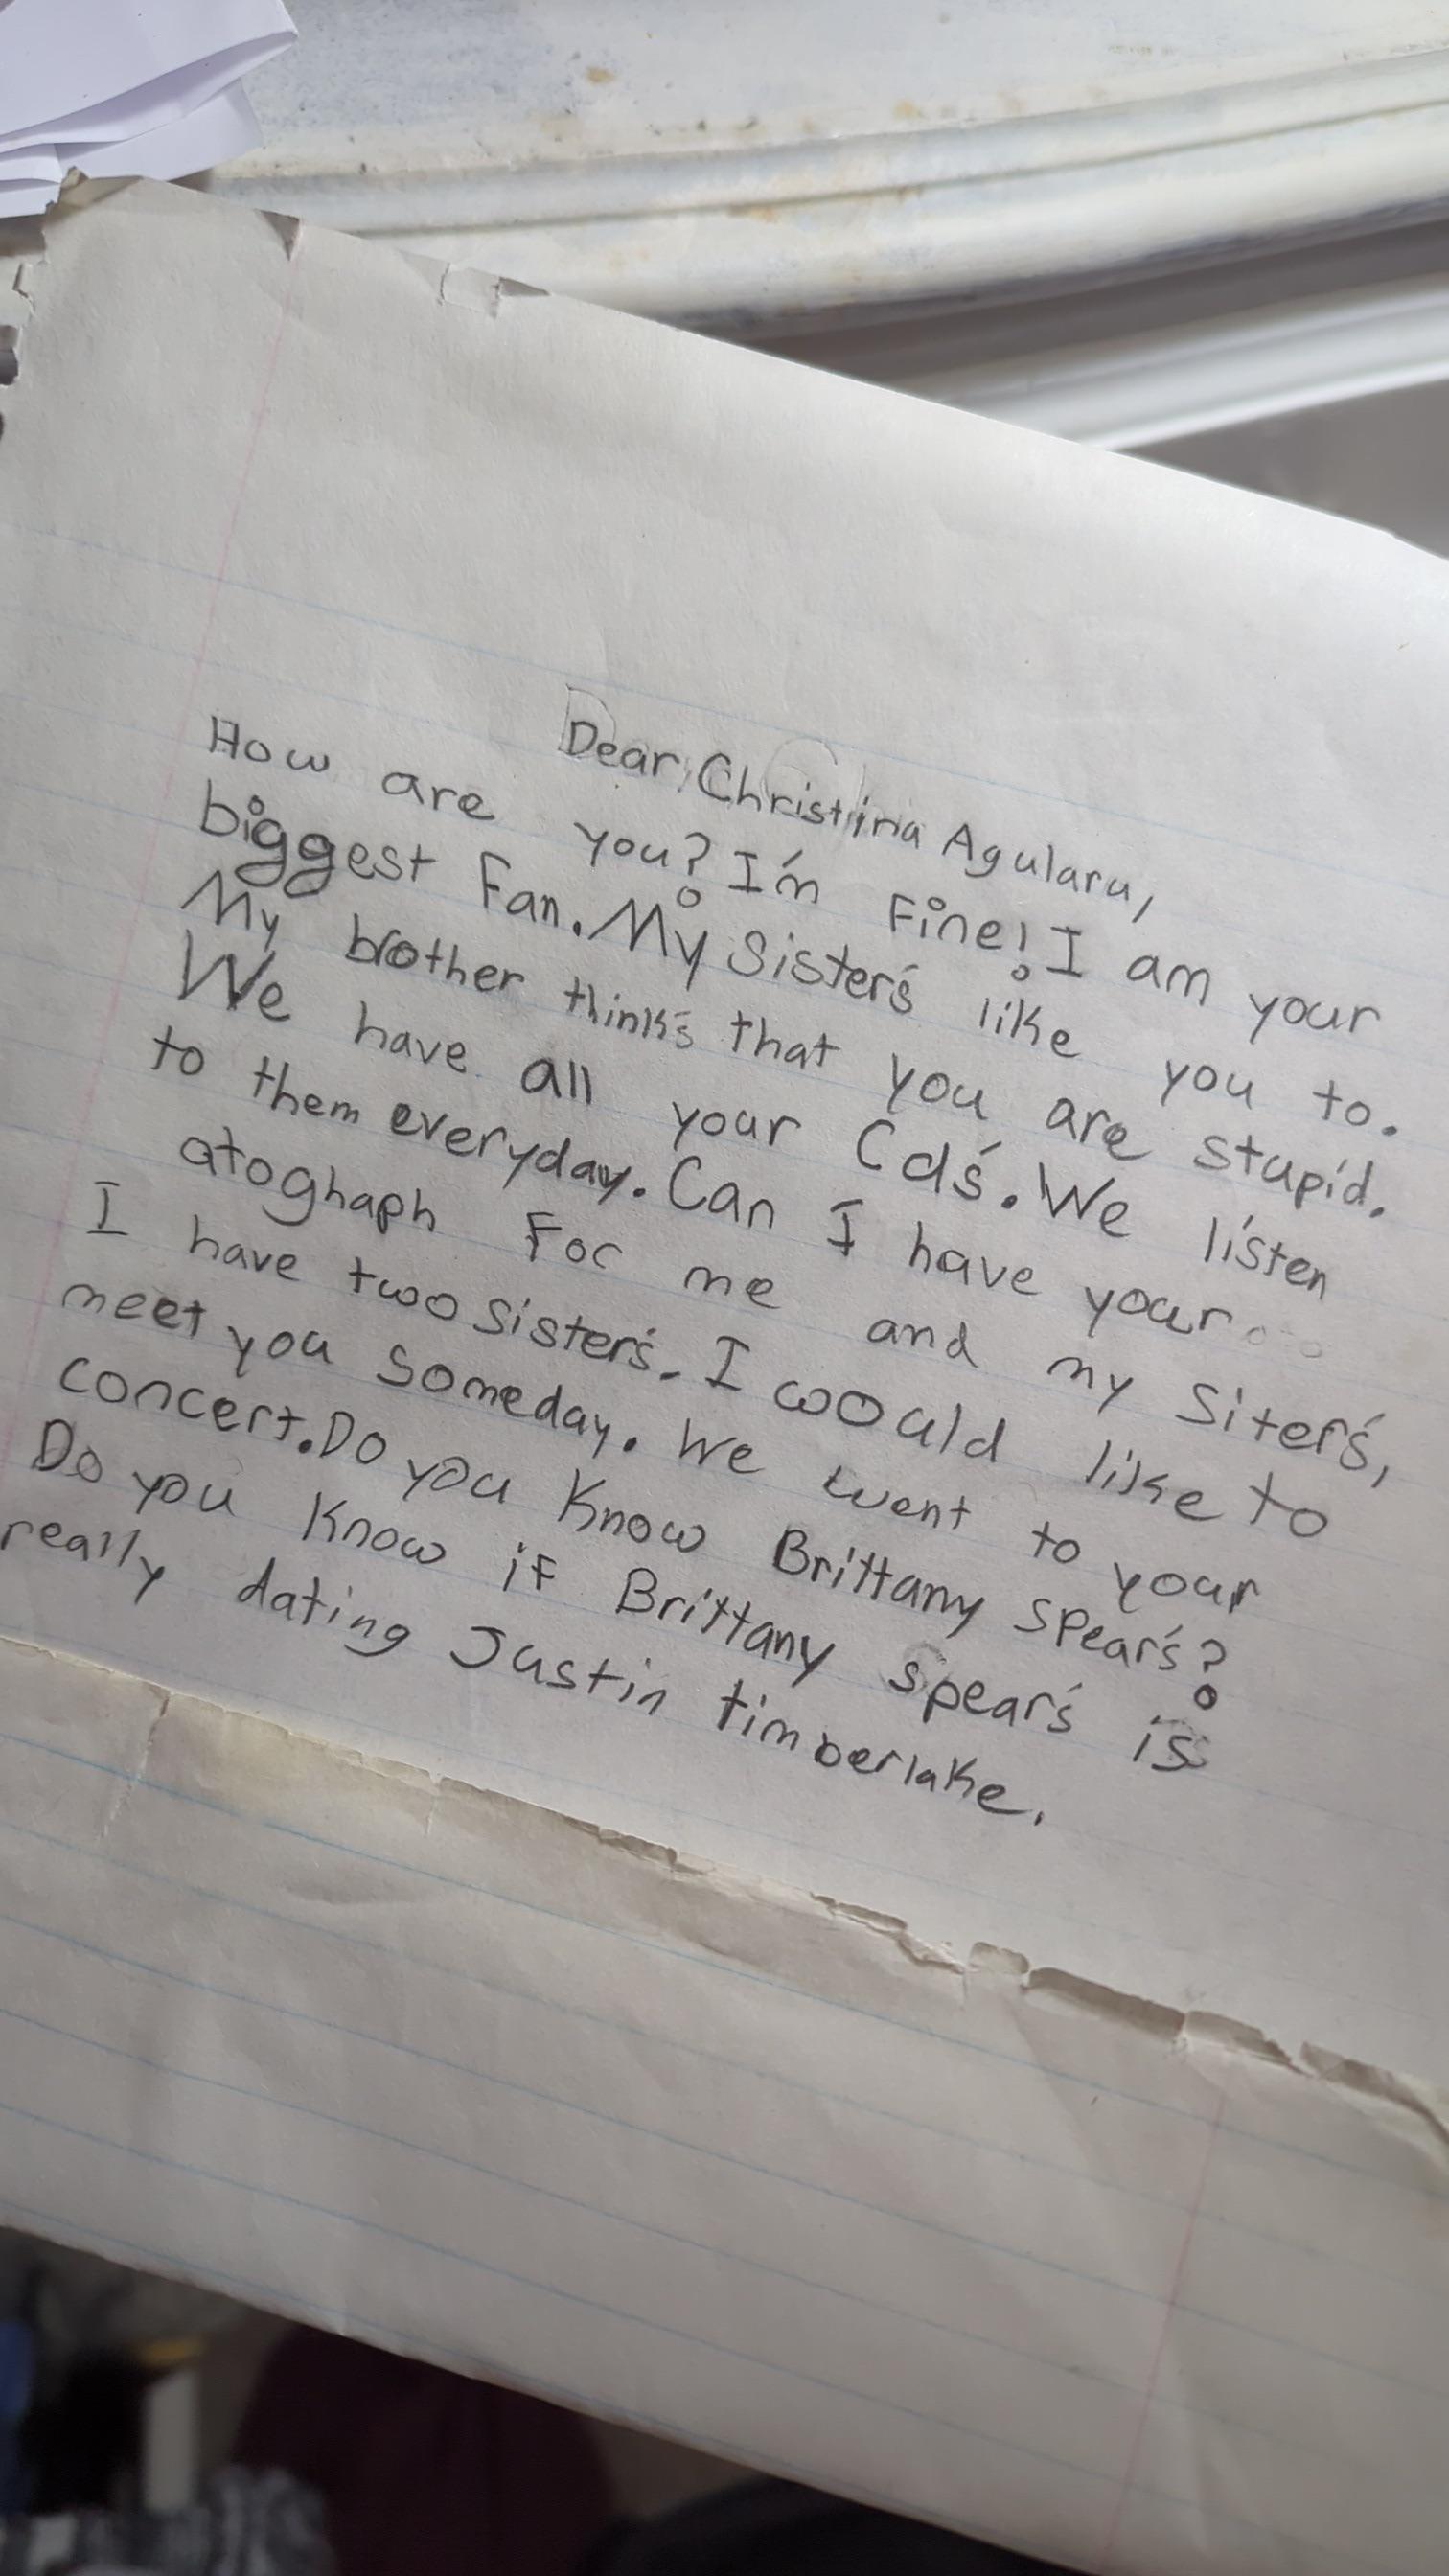 Dear, Christina Agulara,
How are you? I'm Fine! I am your
biggest Fan. My Sister's like you to.
My brother think's that you are stupid.
We have all your Cd's. We listen
to them everyday. Can I have your
atoghaph For me and my Siter's,
I have two sister's. I woould like to
meet you someday. We went to your
concert. Do you Know Brittany spear's?
Do you Know if Brittany spear's is
really dating Justin timberlake.